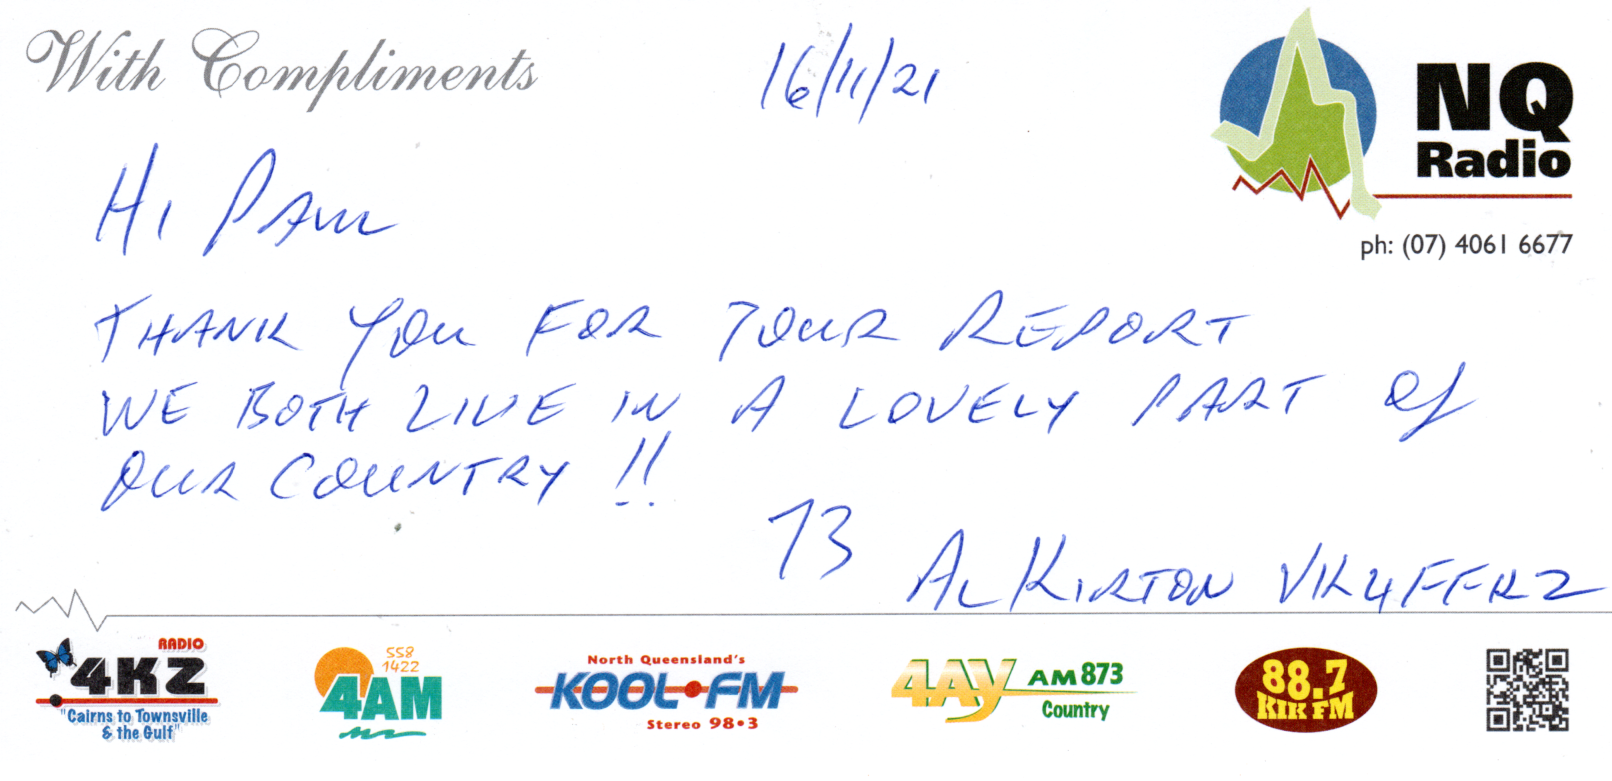 With Compliments
16/11/21
NQ
Radio
ph: (07) 4061 6677
HI PAUL
THANK YOU FOR YOUR REPORT
WE BOTH LIVE IN A LOVELY PART OF
OUR COUNTRY !!
73
AL KIRTON VK4FFKZ
RADIO
4KZ
"Cairns to Townsville
& the Gulf"
558
1422
4AM
North Queensland's
KOOL•FM
Stereo 98•3
4AY AM 873
Country
88.7
KIK FM